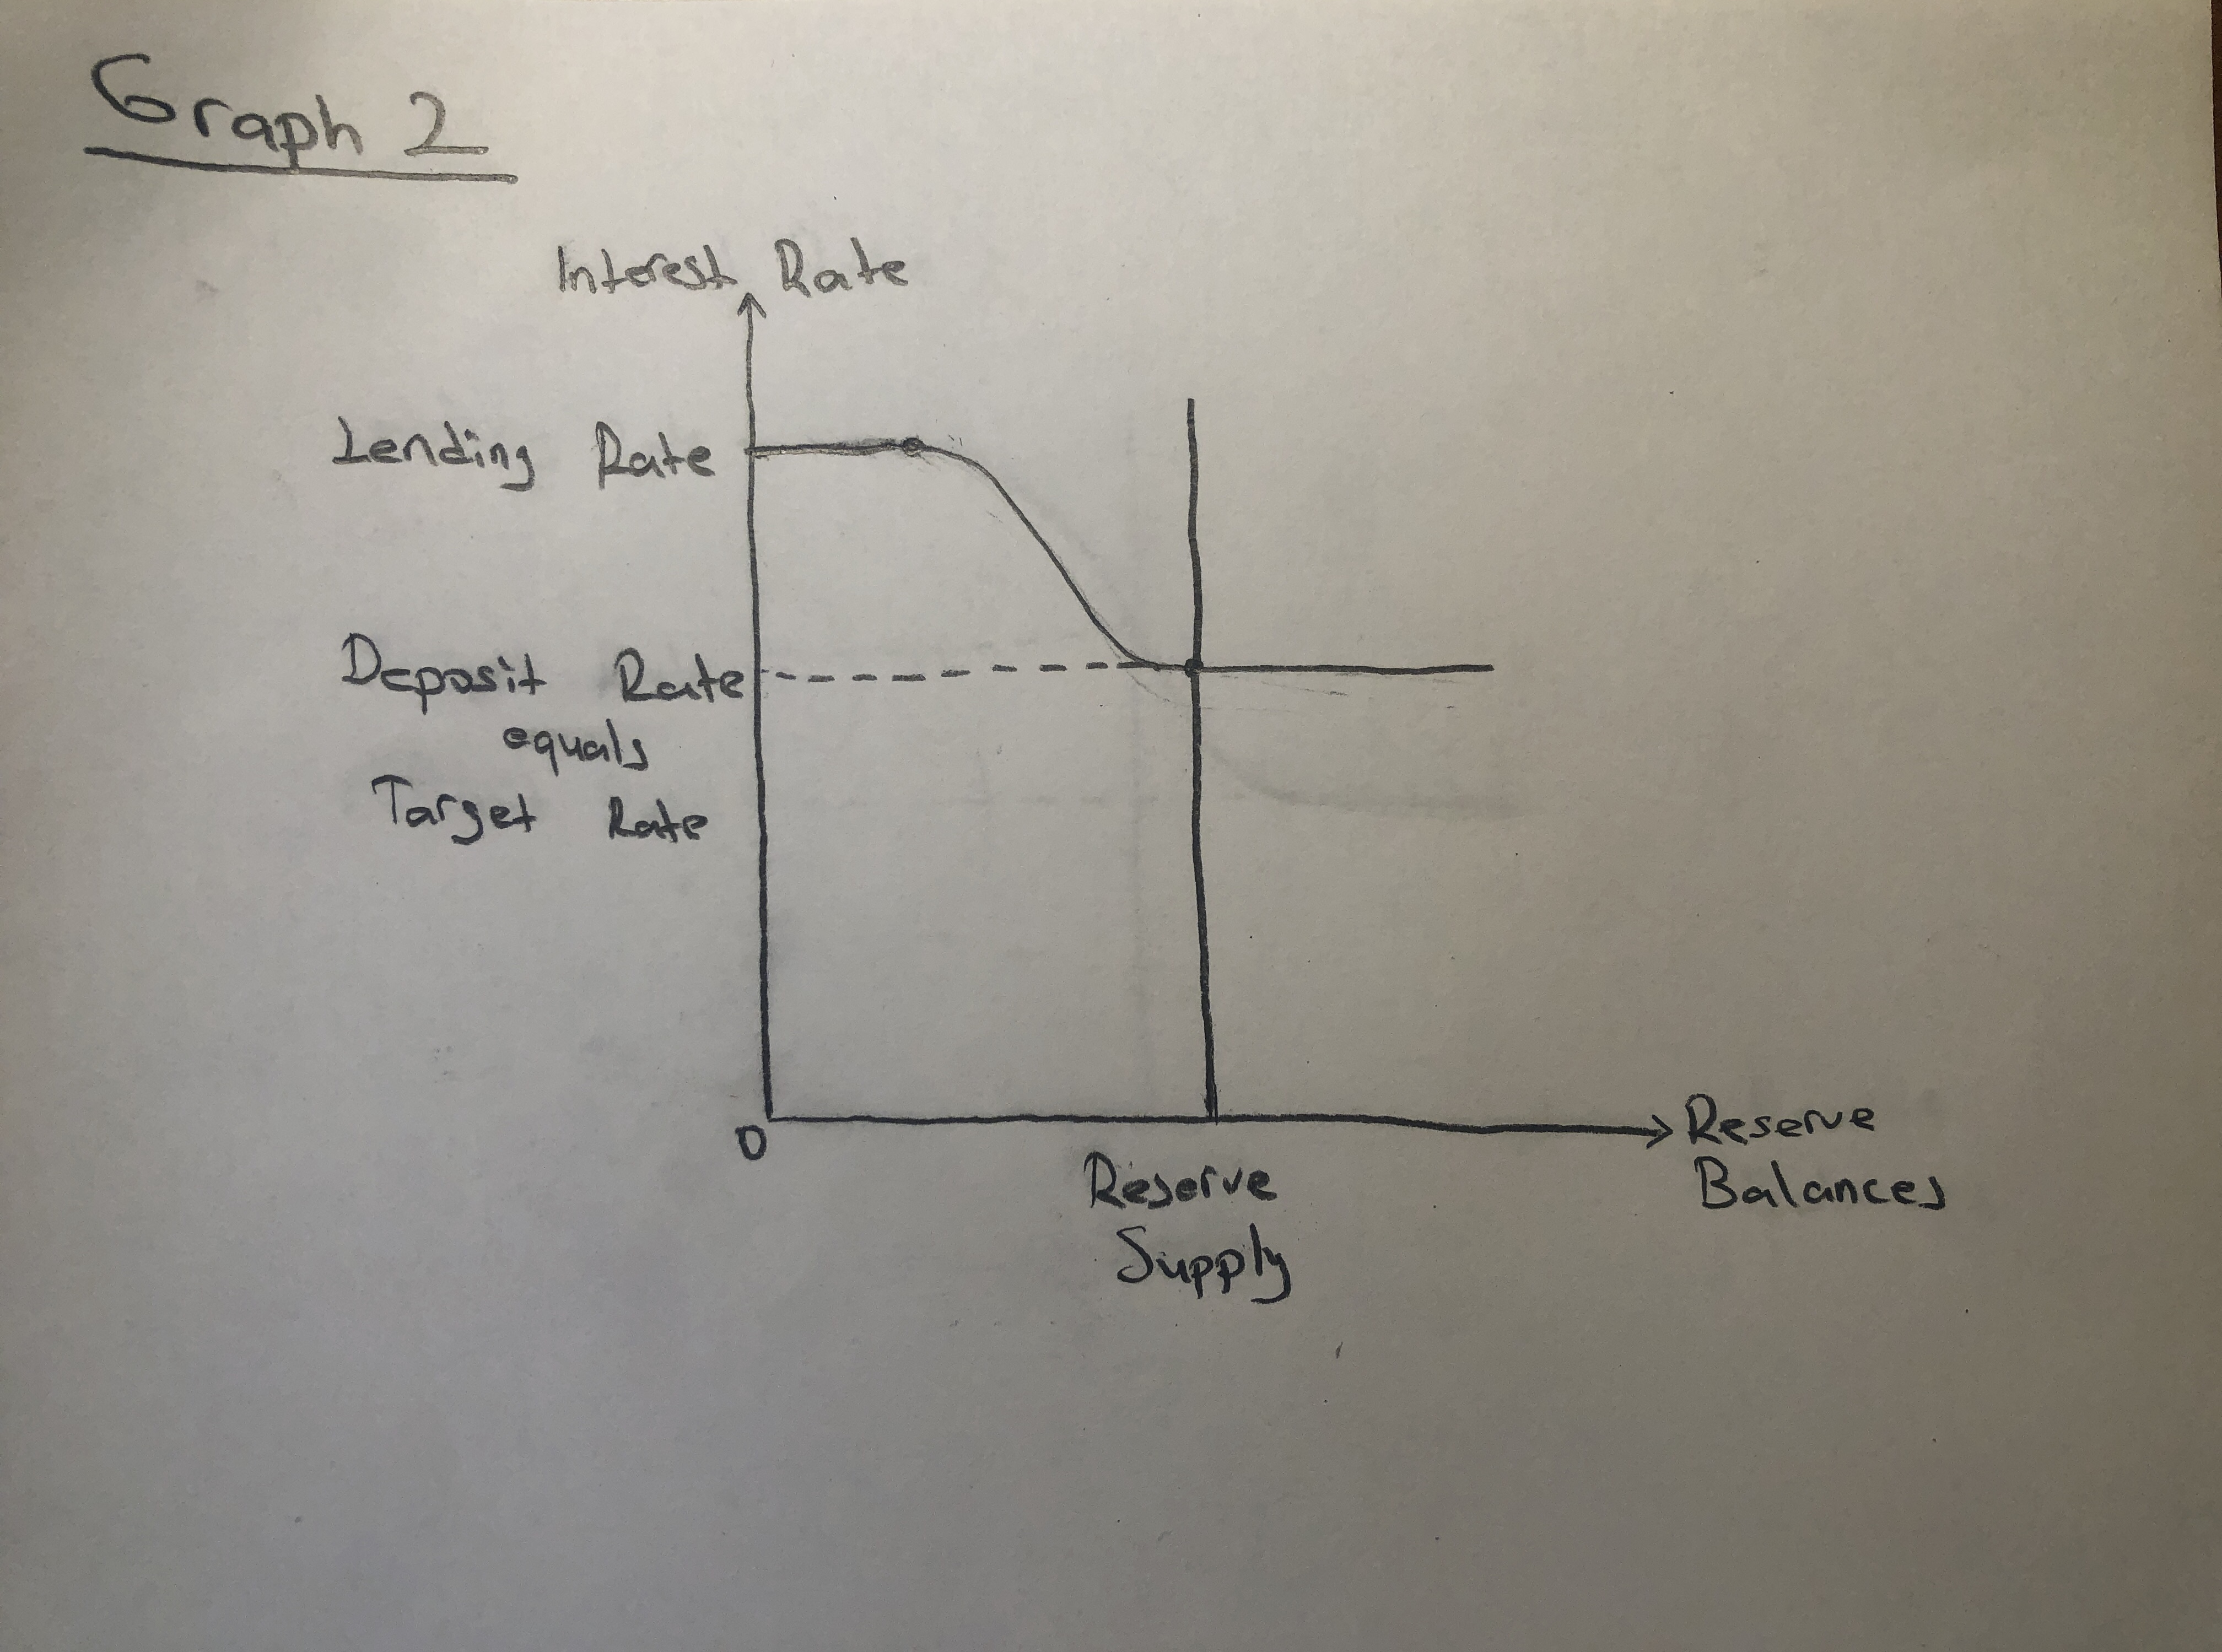 Graph 2
Interest Rate
Lending Rate
Deposit Rate
equals
Target Rate
0
Reserve
Balances
Reserve
Supply